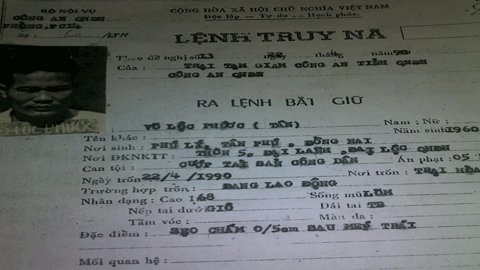 BỘ NỘI VỤ
CÔNG AN QNĐN
PHÒNG PC14
Số : /LTN
CỘNG HÒA XÃ HỘI CHỦ NGHĨA VIỆT NAM
Độc lập — Tự do — Hạnh phúc
LỆNH TRUY NÃ
Theo đề nghị 13 ngày 22 tháng 4 năm 90
Của : TRẠI TẠM GIAM CÔNG AN TỈNH QNĐN
CÔNG AN QNĐN
RA LỆNH BẮT GIỮ
VÕ LỘC PHƯỚC ( TẤN)
Nam ; Nữ :
Tên khác :
Năm sinh 1960
Nơi sinh : PHÚ LÝ, TÂN PHÚ , ĐỒNG NAI
Nơi ĐKNKTT : THÔN 5, ĐẠI LÃNH, ĐẠI LỘC QNĐN
Can tội : CƯỚP TÀI SẢN CÔNG DÂN
Án phạt : 05
Ngày trốn 22/4 /1990
Nơi trốn : TRẠI HÒA
Trường hợp trốn : ĐANG LAO ĐỘNG
Nhân dạng : Cao 1,68
Sống mũi LÕM
Nếp tai dưới GIÔ
Dái tai TB
Tầm vóc :
Màu da :
Đặc điểm : SẸO CHẤM 0/5cm SAU MÉP TRÁI
Mối quan hệ :